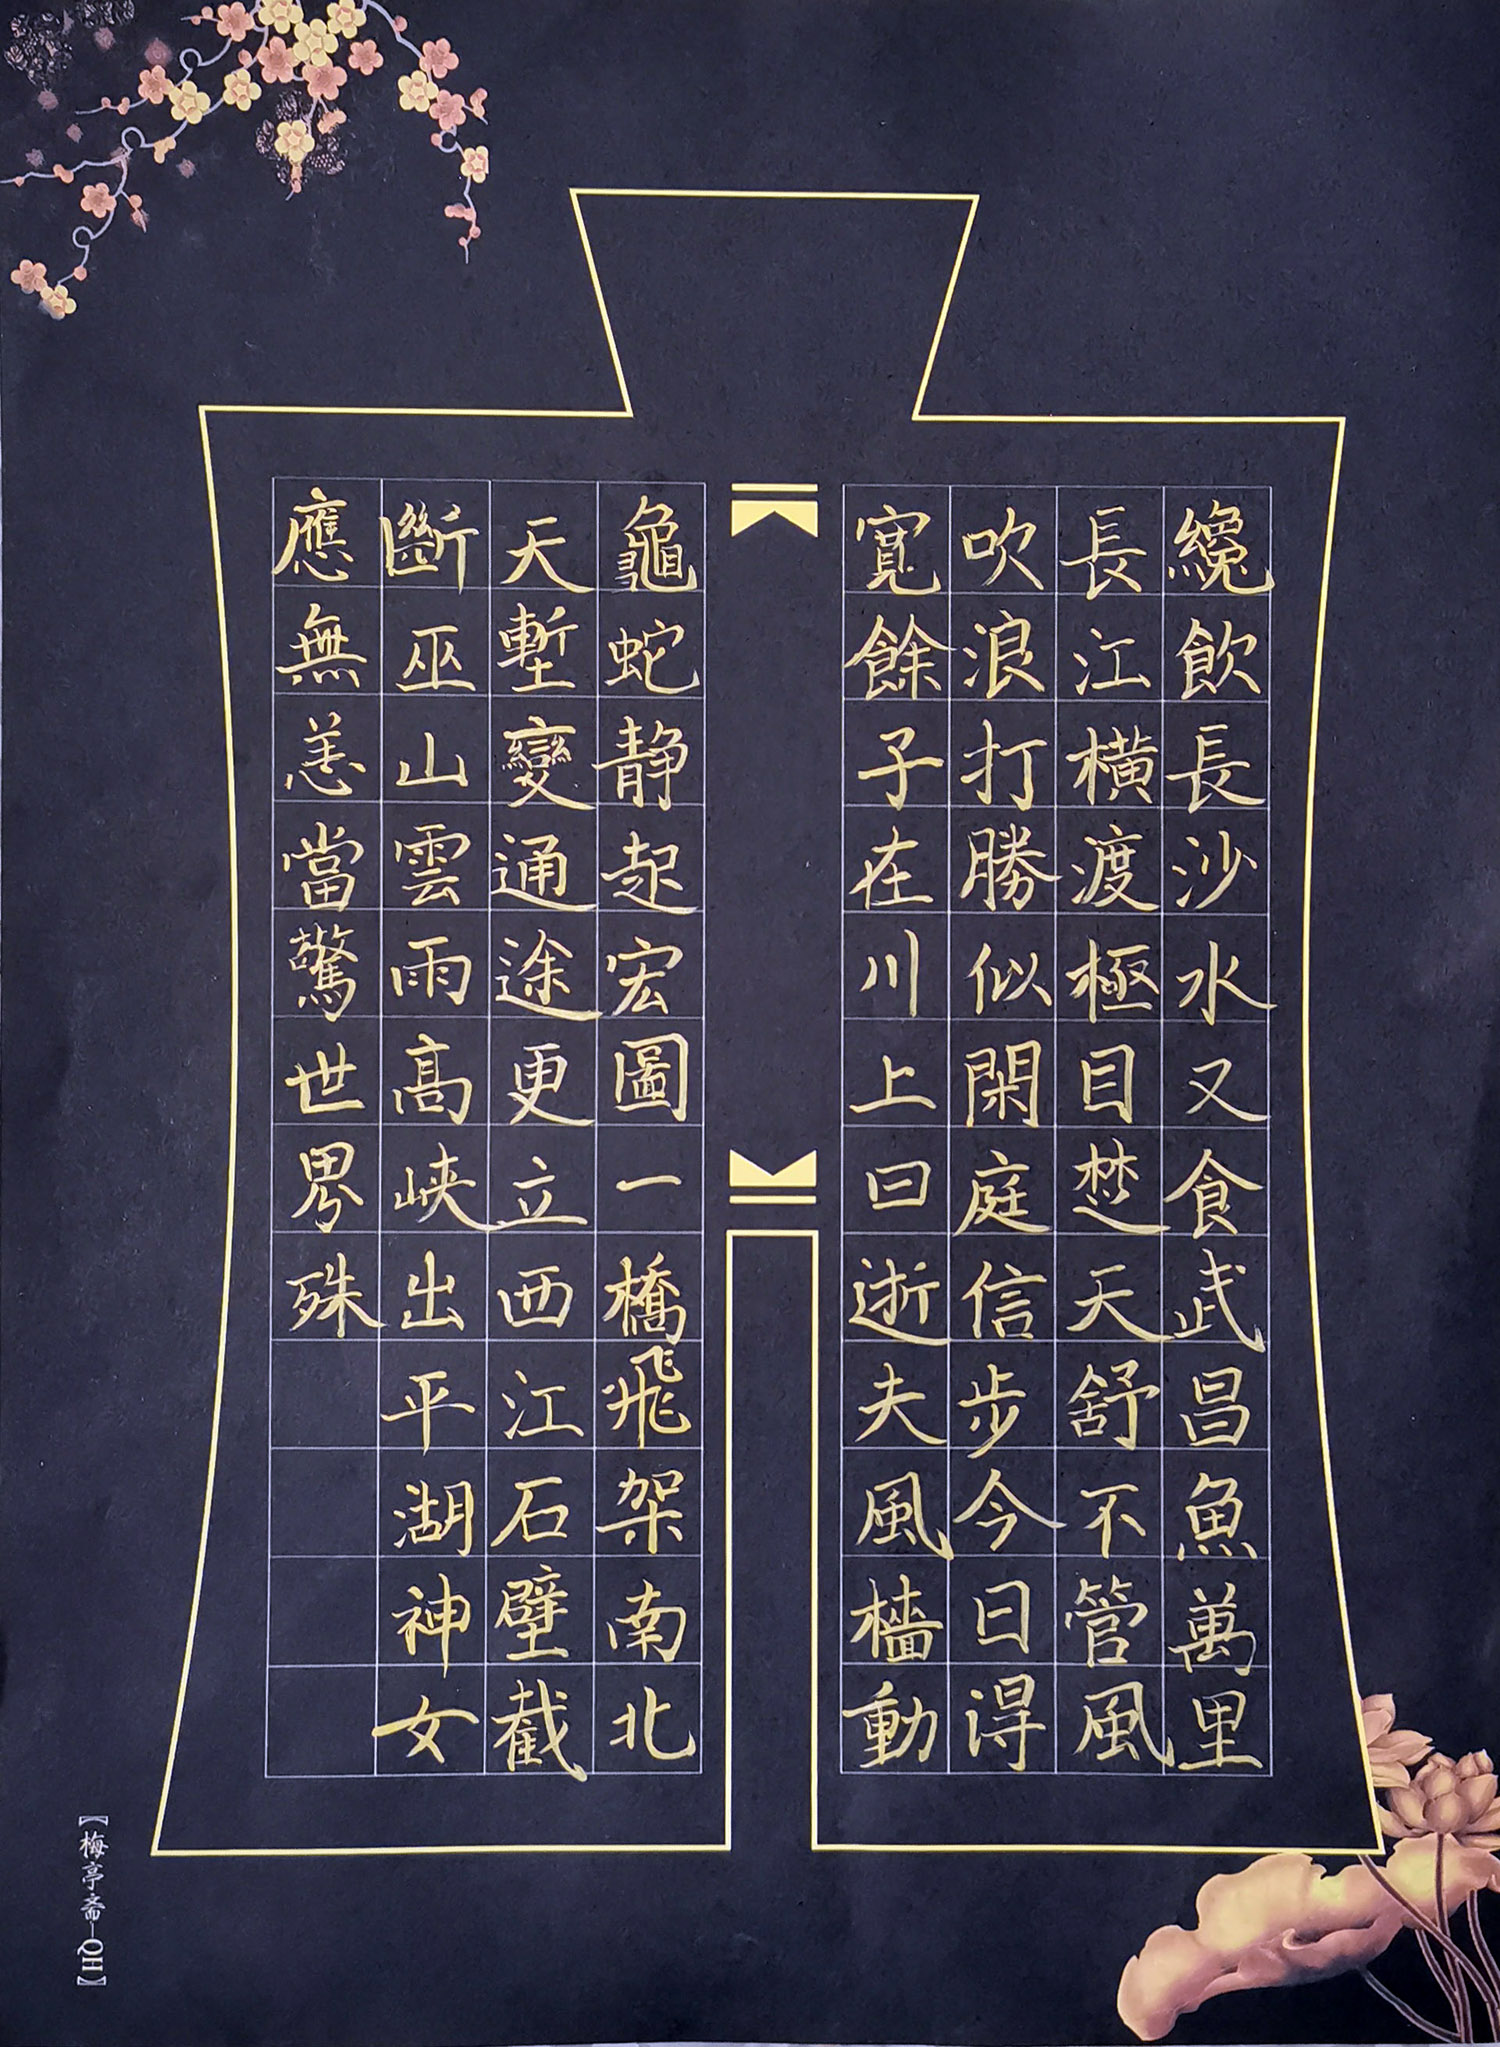 纔飲長沙水又食武昌魚萬里
長江橫渡極目楚天舒不管風
吹浪打勝似閑庭信步今日得
寬餘子在川上曰逝夫風檣動
龜蛇静起宏圖一橋飛架南北
天塹變通途更立西江石壁截
斷巫山雲雨高峽出平湖神女
應無恙當驚世界殊
【梅亭斋—QH】